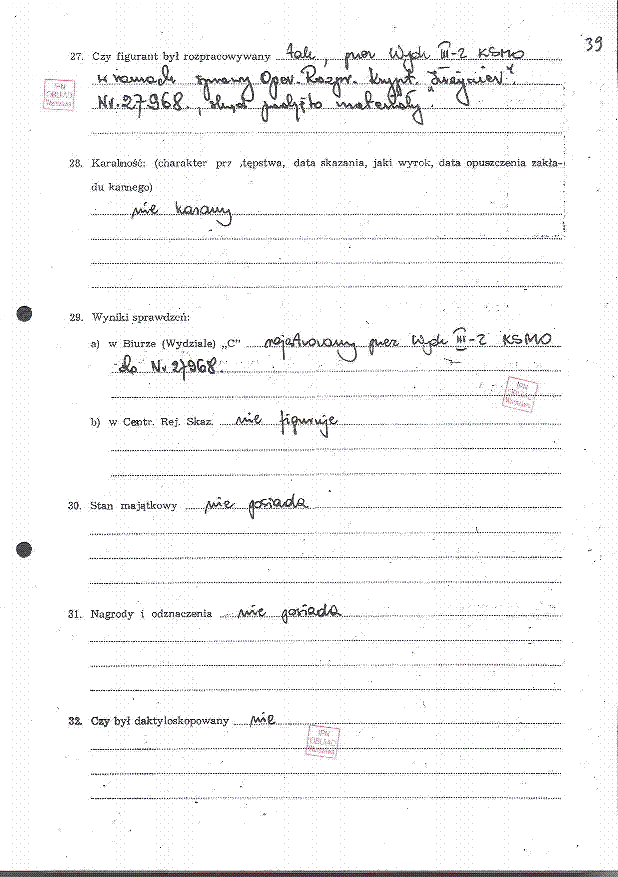 39
27. Czy figurant był rozpracowywany tak, przez Wydz III-2 KSMO
w ramach sprawy Oper. Rozpr. krypt.
Nr. 27968., materiały
IPN
OBUiAD
Warszawa
28. Karalność: (charakter prz .tępstwa, data skazania, jaki wyrok, data opuszczenia zakła-
du karnego)
nie karany
29. Wyniki sprawdzeń:
a) w Biurze (Wydziale) „C" rejestrowany przez Wydz III-2 KSMO
do Nr 27968.
IPN
OBUiAD
Warszawa
b) w Centr. Rej. Skaz. nie figuruje
30. Stan majątkowy nie posiada
31. Nagrody i odznaczenia nie posiada
32. Czy był daktyloskopowany nie
IPN
OBUiAD
Warszawa